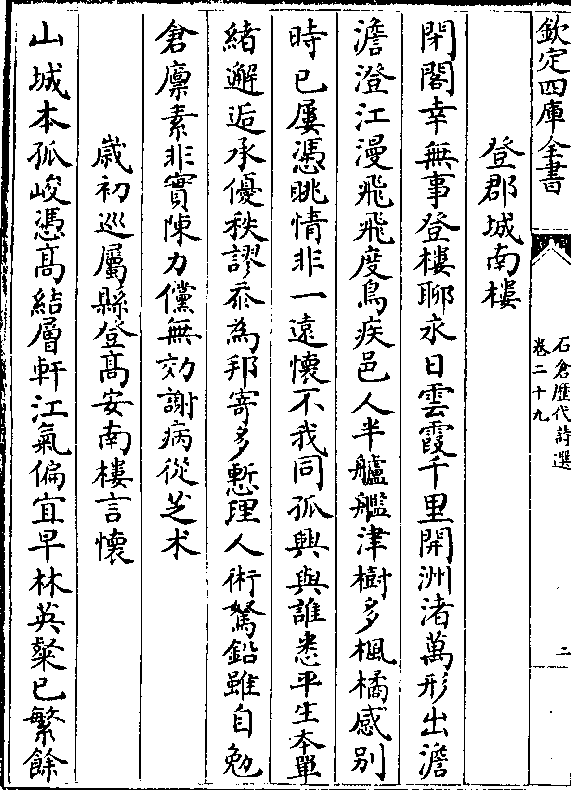 欽定四庫全書
石倉歷代詩選
卷二十九
二
登郡城南樓
閉閣幸無事登樓聊永日雲霞千里開洲渚萬形出澹
澹澄江漫飛飛度鳥疾邑人半艫艦津樹多楓橘感别
時已屢憑眺情非一遠懷不我同孤興與誰悉平生本單
緒邂逅承優秩謬忝為邦寄多慙理人術駑鉛雖自勉
倉廪素非實陳力儻無効謝病從芝术
歲初巡屬縣登髙安南樓言懷
山城本孤峻憑髙結層軒江氣偏宜早林英粲已繁餘